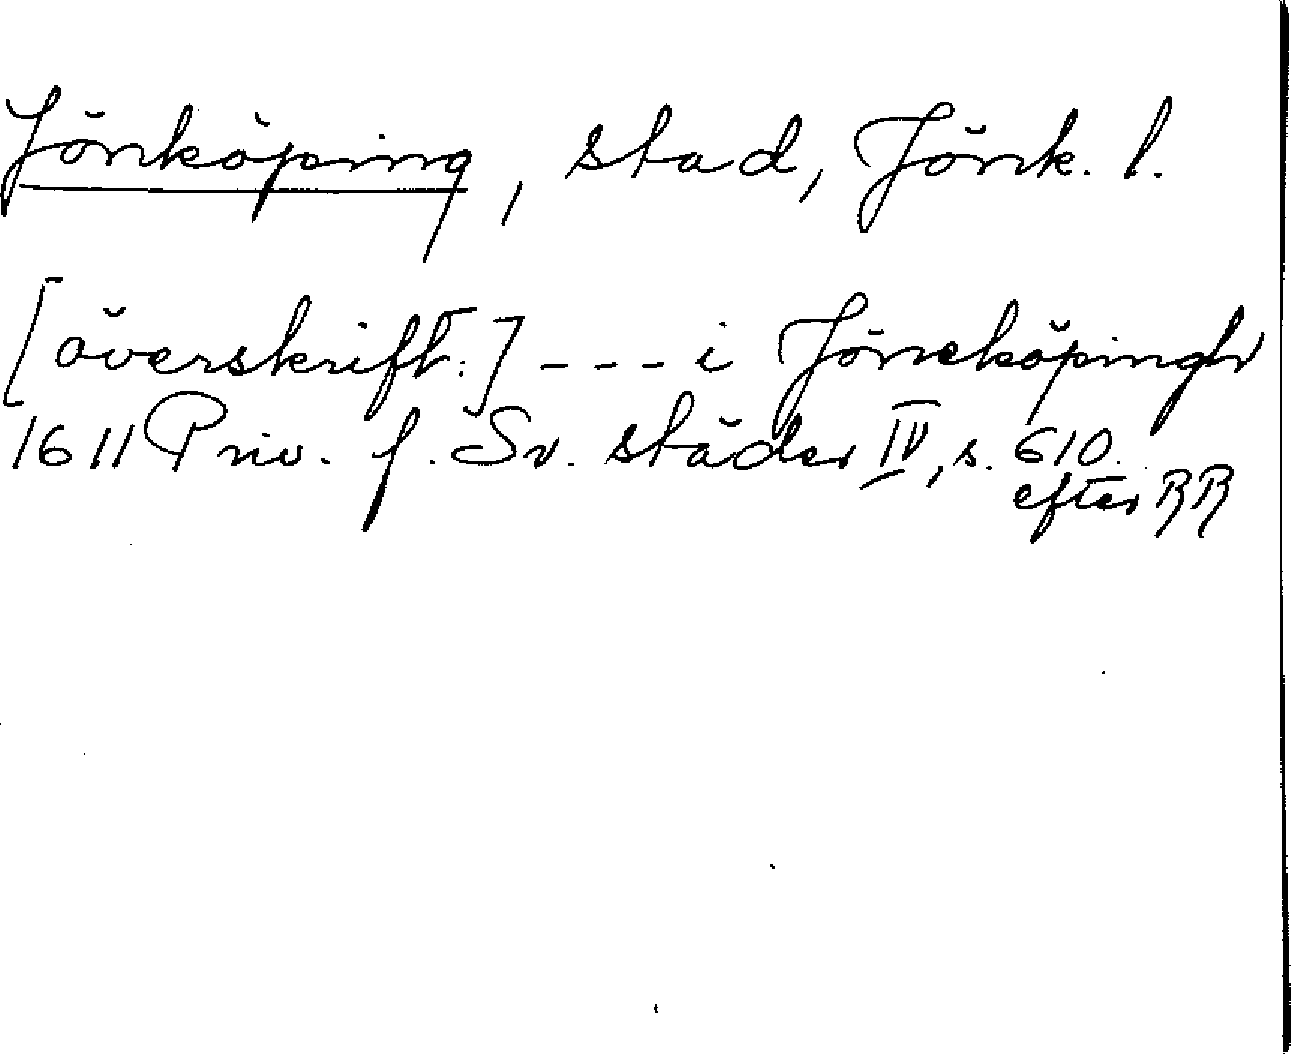 Jönköping, stad, Jönk. l.
[överskrift:] - - - i Jöneköpingh
1611 Priv. f. Sv. städer IV, s. 610.
efter RR